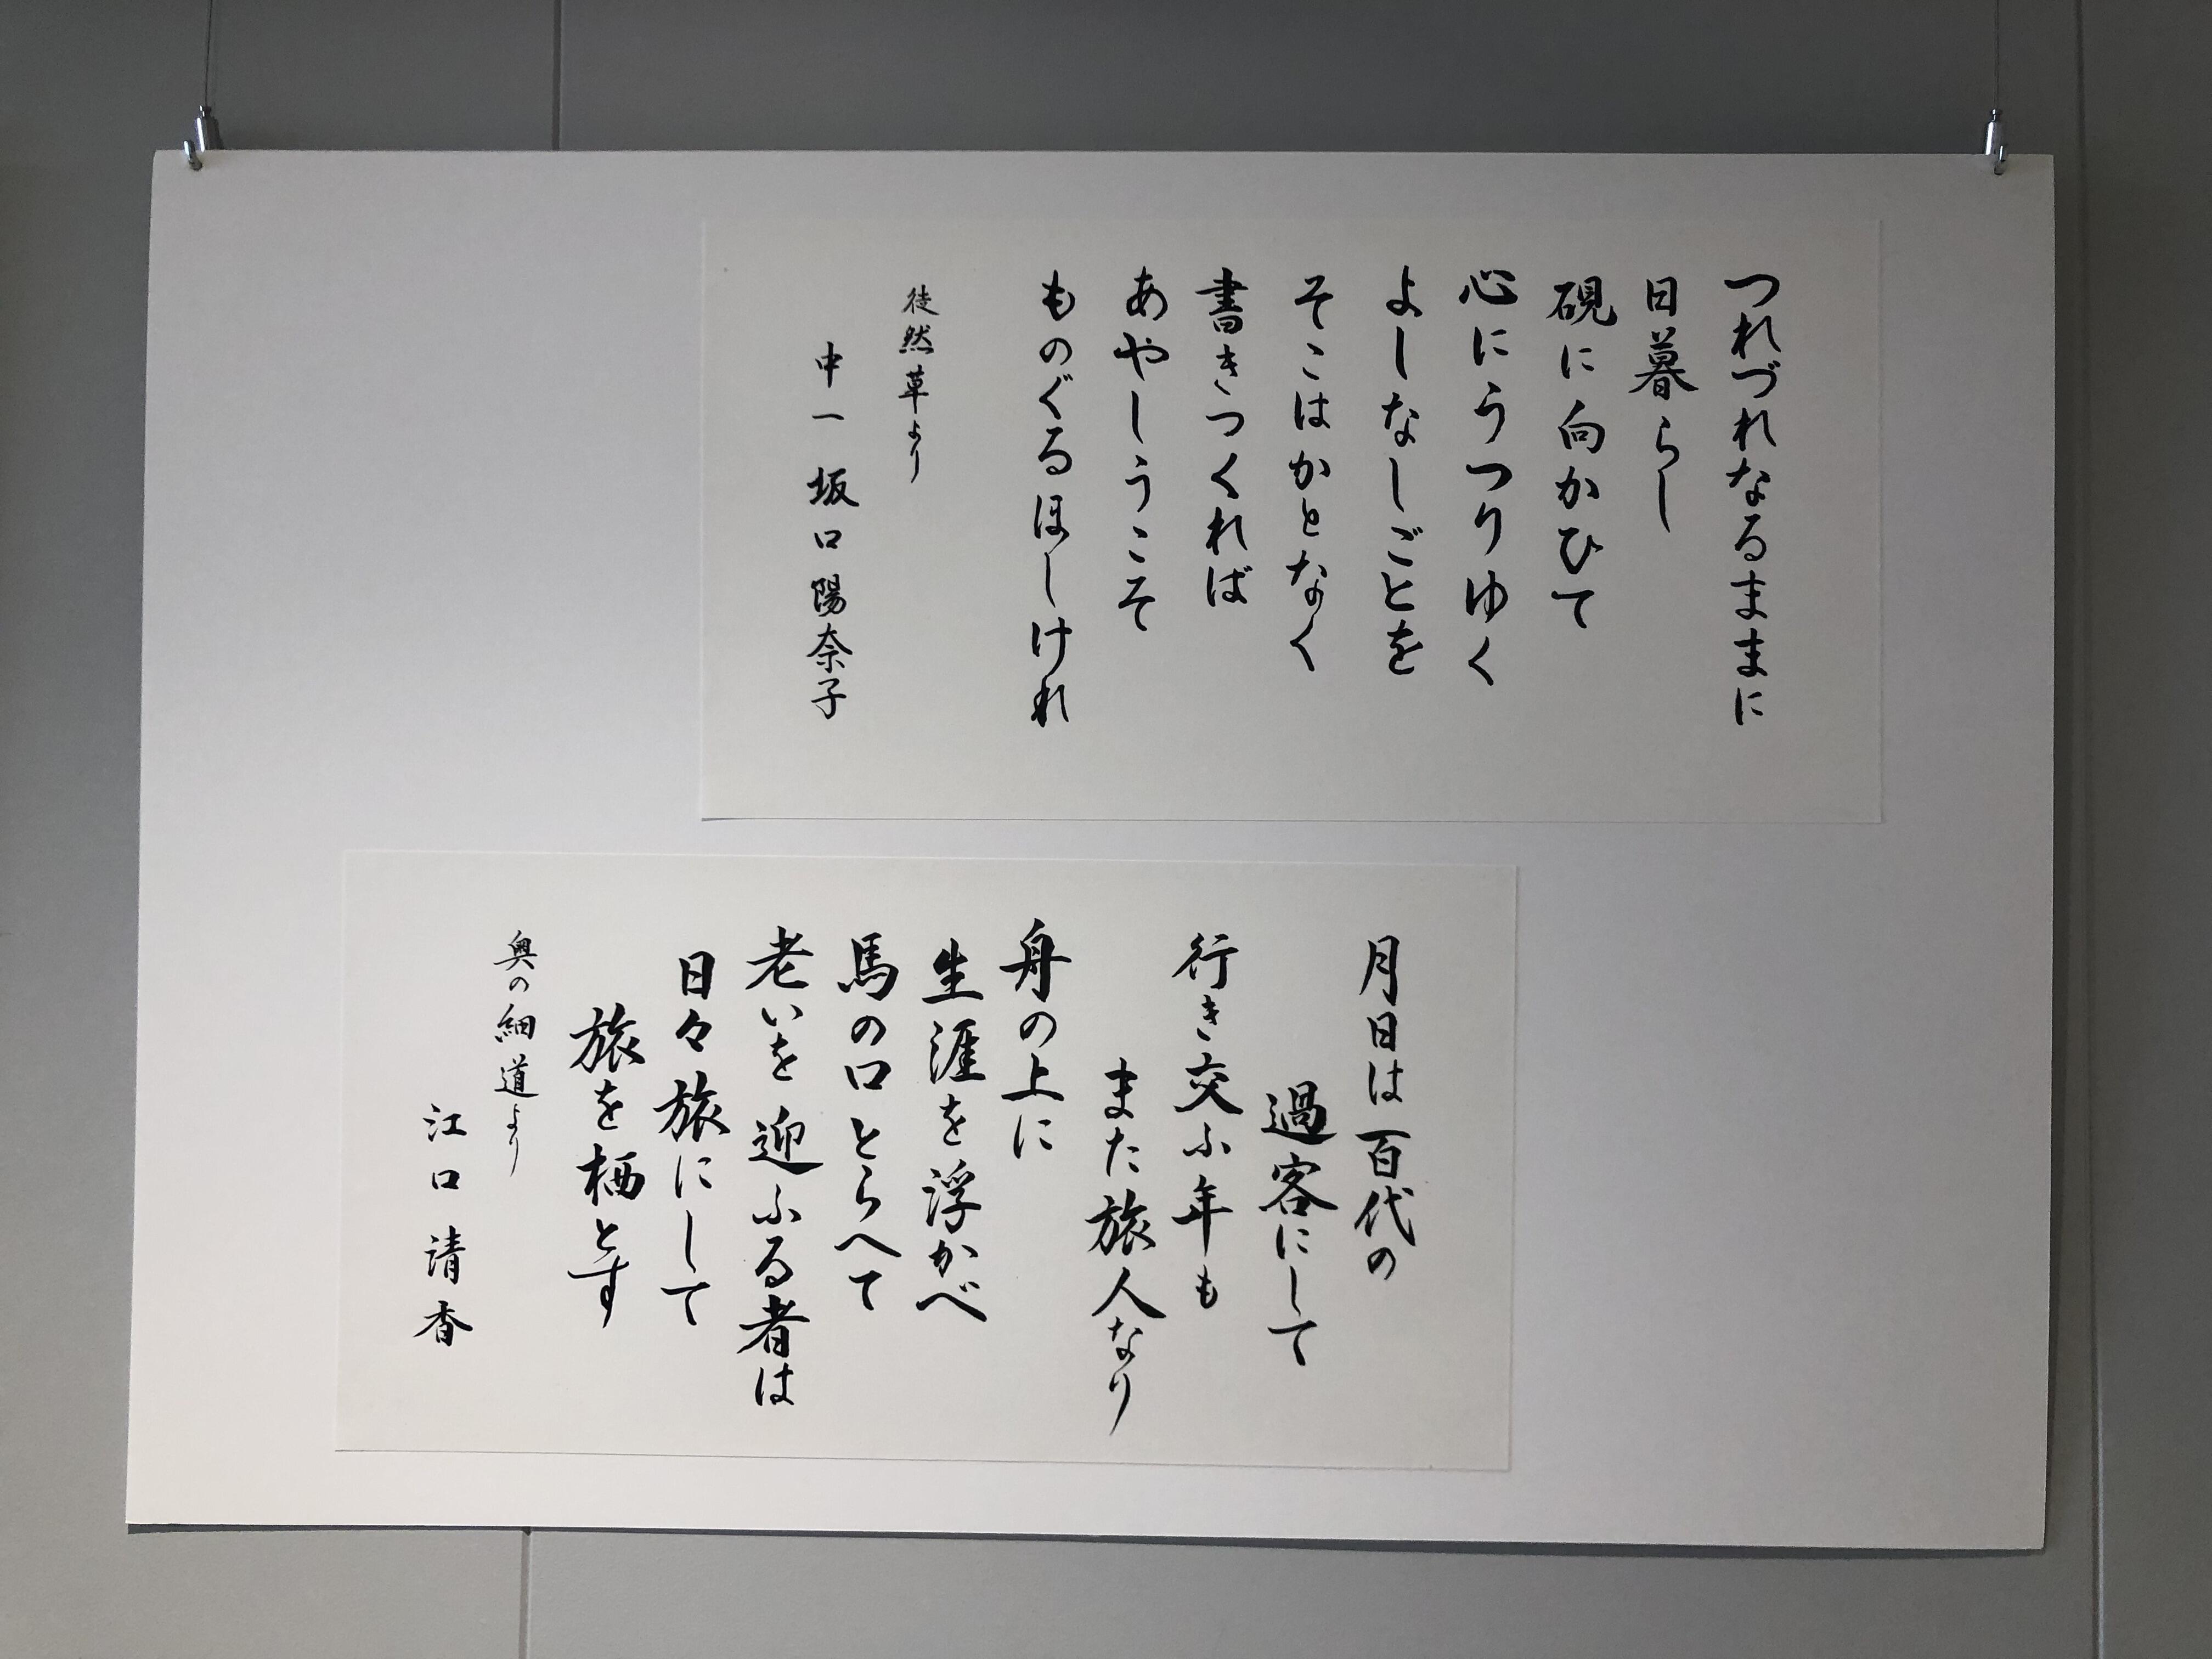 つれづれなるままに
日暮らし
硯に向かひて
心にうつりゆく
よしなしごとを
そこはかとなく
書きつくれば
あやしうこそ
ものぐるほしけれ
徒然草より
中一 坂口陽奈子
月日は百代の
過客にして
行き交ふ年も
また旅人なり
舟の上に
生涯を浮かべ
馬の口とらへて
老いを迎ふる者は
日々旅にして
旅を栖とす
奥の細道より
江口清香